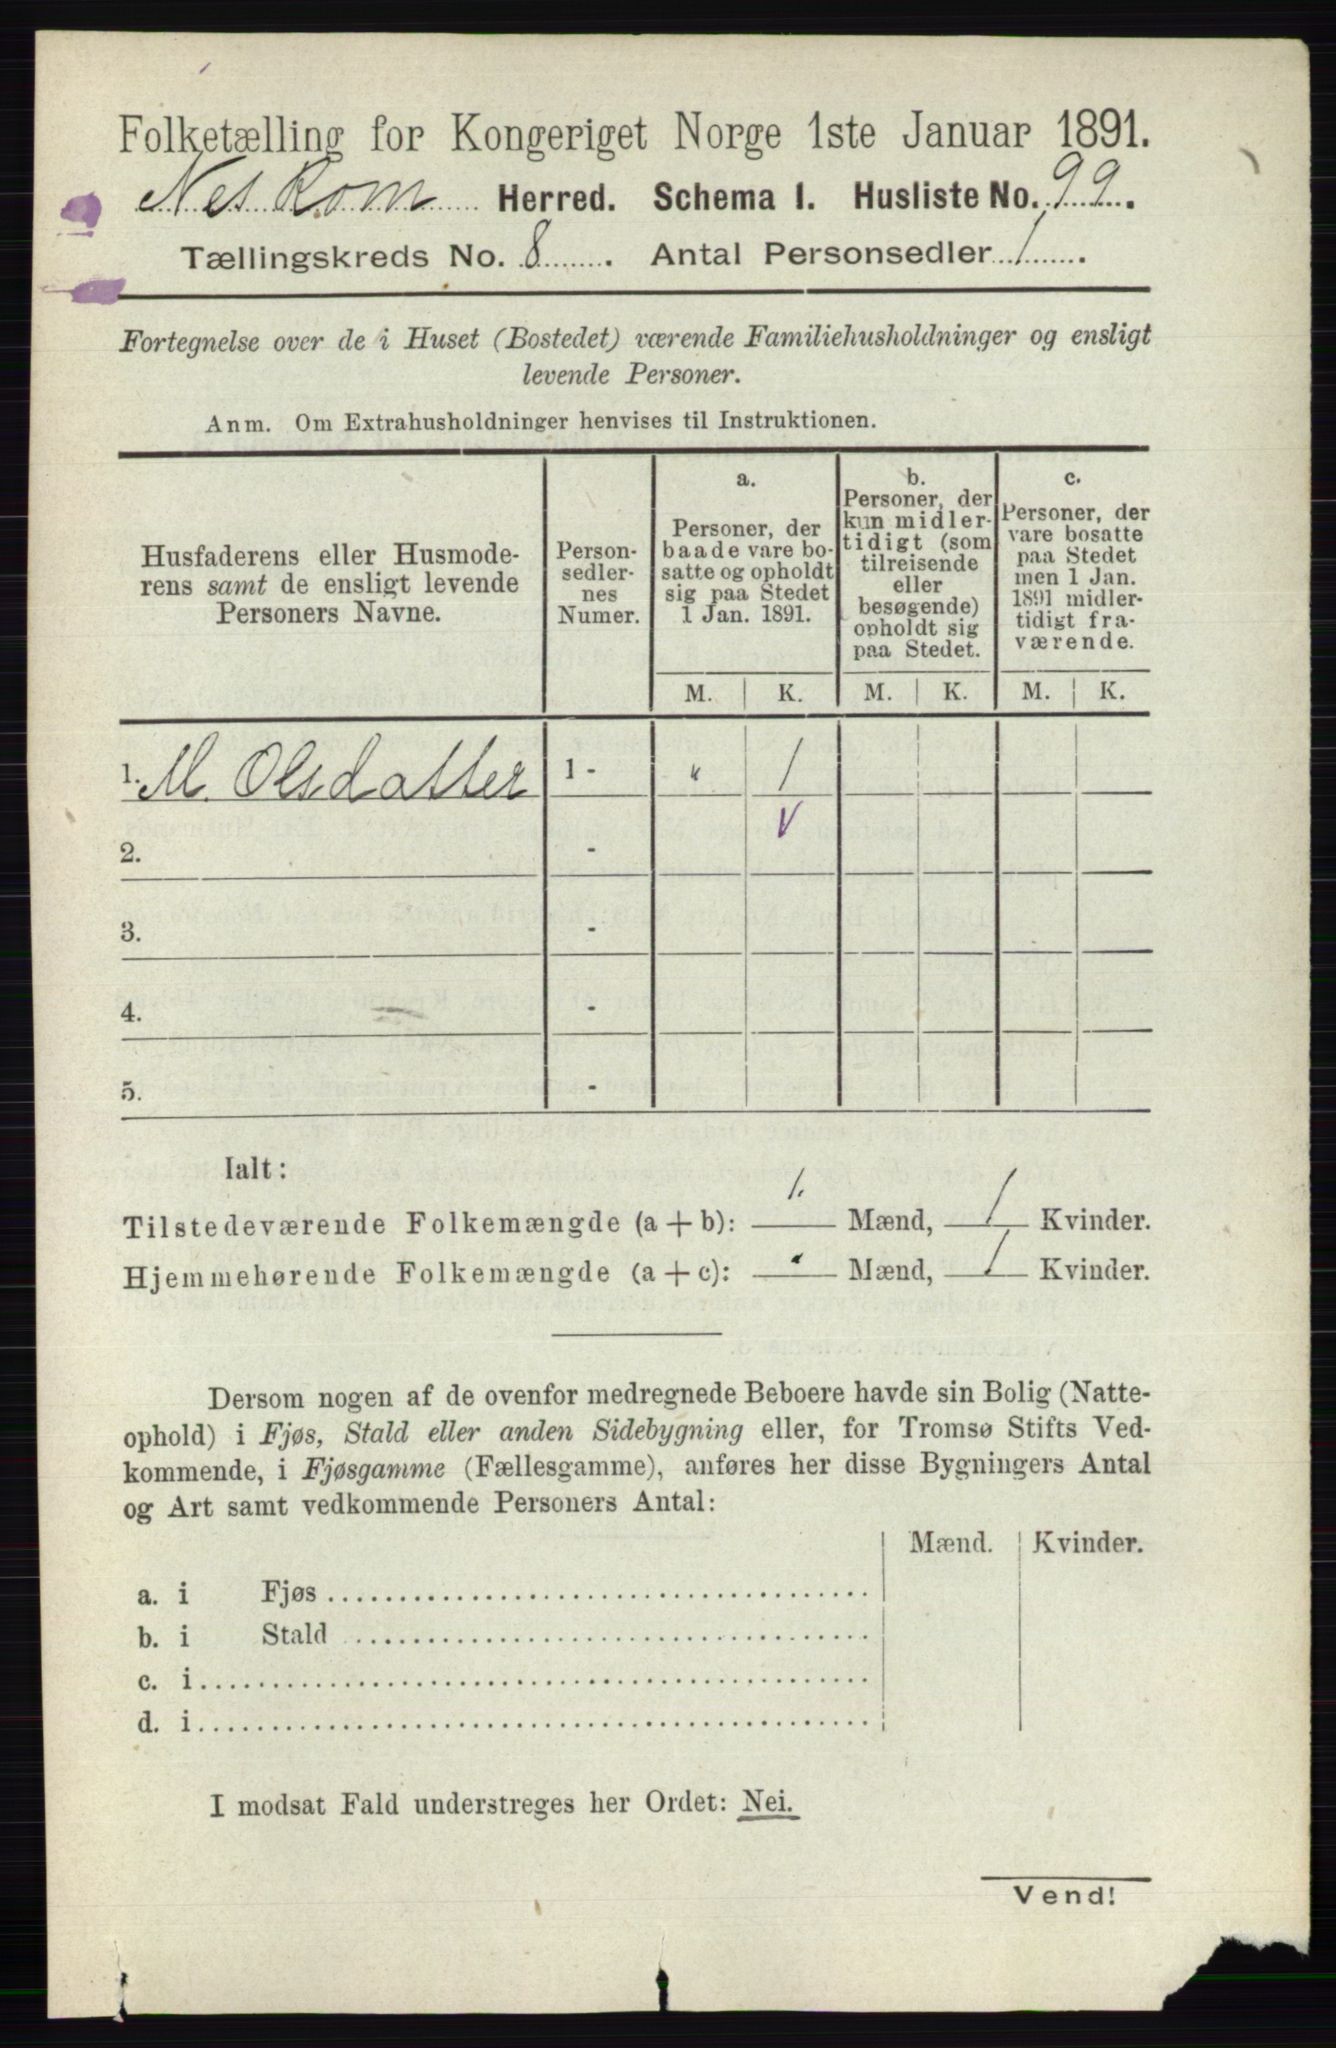 Folketælling for Kongeriget Norge 1ste Januar 1891.
Nes Kom Herred. Schema I. Husliste No. 99.
Tællingskreds No. 8. Antal Personsedler 1.
Fortegnelse over de i Huset (Bostedet) værende Familiehusholdninger og ensligt
levende Personer.
Anm. Om Extrahusholdninger henvises til Instruktionen.
Husfaderens eller Husmode-
rens samt de ensligt levende
Personers Navne.
Person-
sedler-
nes
Numer.
a.
Personer, der
baade vare bo-
satte og opholdt
sig paa Stedet
1 Jan. 1891.
b.
Personer, der
kun midler-
tidigt (som
tilreisende
eller
besøgende)
opholdt sig
paa Stedet.
c.
Personer, der
vare bosatte
paa Stedet
men 1 Jan.
1891 midler-
tidigt fra-
værende.
M. K. M. K. M. K.
1. M. Olsdatter 1 - " 1
2. -
3. -
4. -
5. -
Ialt:
Tilstedeværende Folkemængde (a + b): Mænd, 1 Kvinder.
Hjemmehørende Folkemængde (a + c): Mænd, 1 Kvinder.
Dersom nogen af de ovenfor medregnede Beboere havde sin Bolig (Natte-
ophold) i Fjøs, Stald eller anden Sidebygning eller, for Tromsø Stifts Ved-
kommende, i Fjøsgamme (Fællesgamme), anføres her disse Bygningers Antal
og Art samt vedkommende Personers Antal:
Mænd. Kvinder.
a. i Fjøs
b. i Stald
c. i
d. i
I modsat Fald understreges her Ordet: Nei.
Vend!